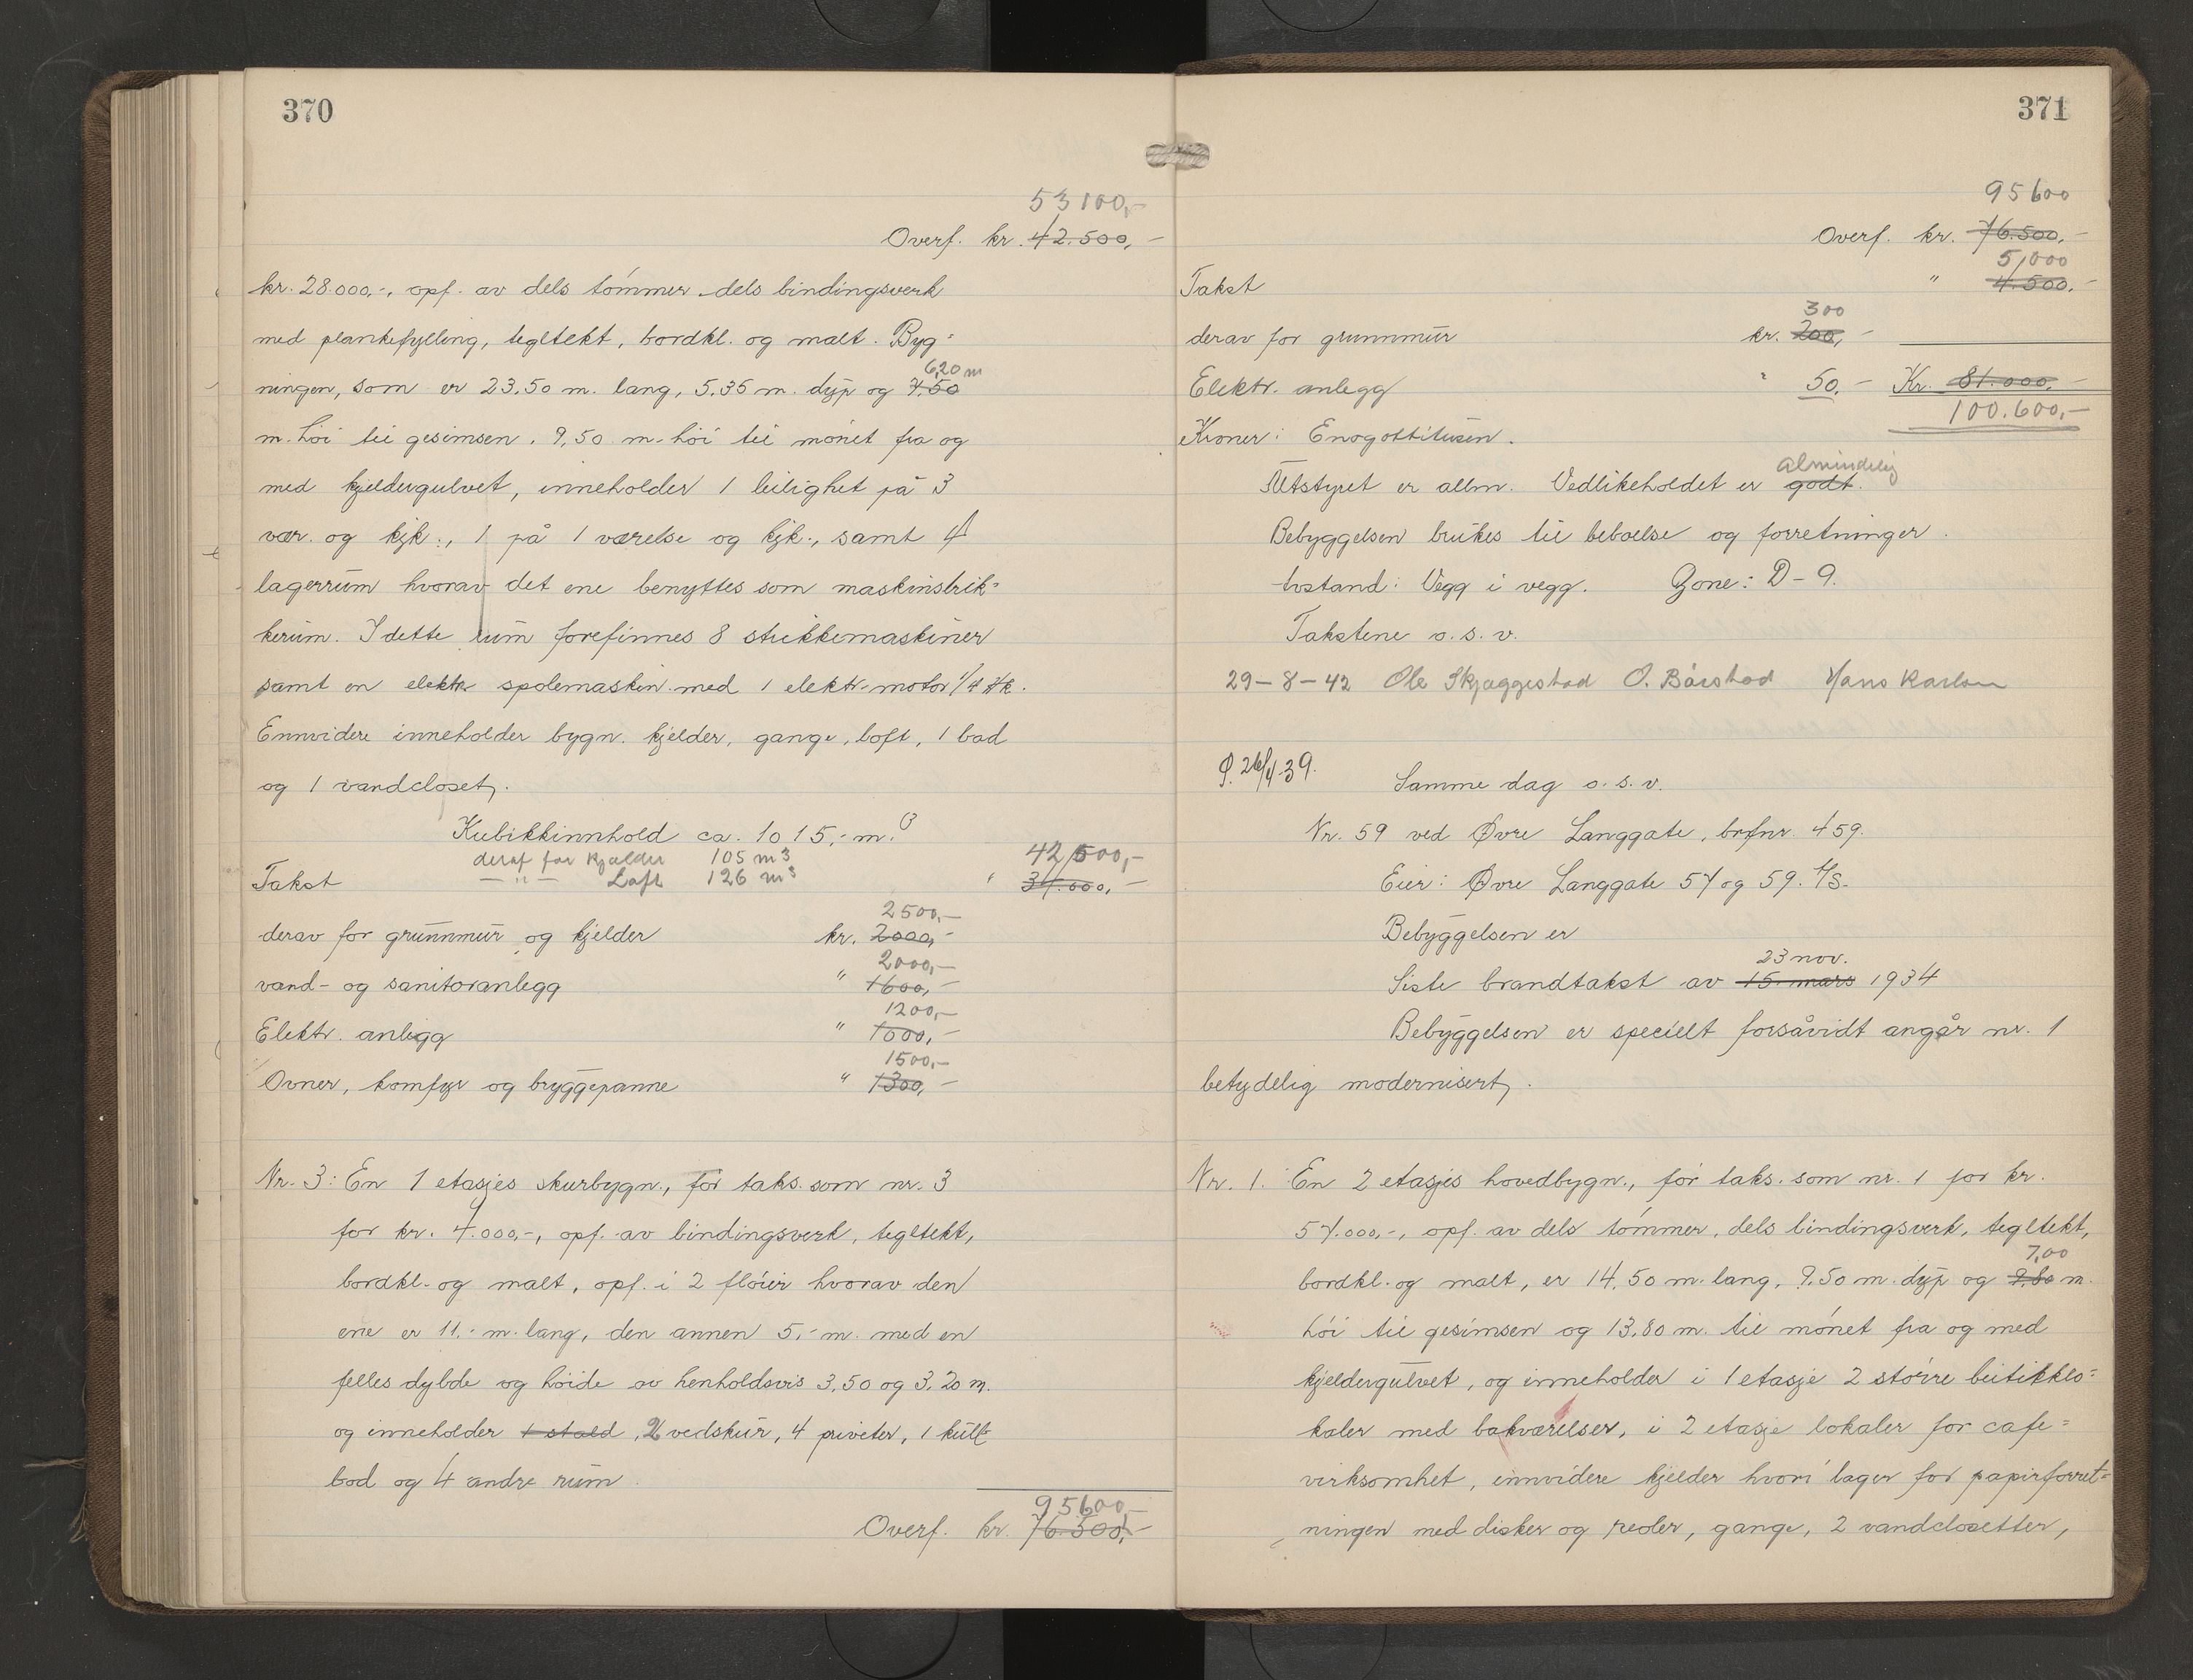 370
53100,-
Overf. kr. 42.500,-
kr. 28.000,-, opf. av dels tømmer dels bindingsverk
med plankefylling, tegltekt, bordkl. og malt. Byg=
6,20 m
ningen, som er 23,50 m. lang, 5,35 m. dyp og 7,50
m. høi til gesimsen, 9,50 m. høi til mønet fra og
med kjeldergulvet, inneholder 1 leilighet på 3
vær. og kjk., 1 på 1 værelse og kjk., samt 4
lagerrum hvorav det ene benyttes som maskinstrik=
kerum. I dette rum forefinnes 8 strikkemaskiner
samt en elektr. spolemaskin med 1 elektr. motor 1/4 Hk.
Ennvidere inneholder bygn. kjelder, gange, loft, 1 bad
og 1 vandcloset.
Kubikkinnhold ca. 1015,- m.3
deraf for kjælder 105 m3
42,500,-
Takst -"- Loft 126 m3 " 34.000,-
2500,-
derav for grunnmur og kjelder kr. 2000,-
2000,-
vand- og sanitæranlegg " 1600,-
1200,-
Elektr. anlegg " 1000,-
1500,-
Ovner, komfyr og bryggepanne " 1300,-
Nr. 3: En 1 etasjes skurbygn., før taks. som nr. 3
for kr. 4.000,-, opf. av bindingsverk, tegltekt,
bordkl. og malt, opf. i 2 fløier hvorav den
ene er 11,- m. lang, den annen 5,- m. med en
felles dybde og høide av henholdsvis 3,50 og 3,20 m.
og inneholder 1 stald, 2 vedskur, 4 priveter, 1 kull
bod og 4 andre rum.
95600,-
Overf. kr. 76.500,-
371
95600
Overf. kr. 76.500,-
5,000
Takst " 4.500,-
300
derav for grunnmur kr. 200,-
Elektr. anlegg " 50,- Kr. 81.000,-
100.600,-
Kroner: Enogottitusen.
almindelig
Utstyret er allm. Vedlikeholdet er godt.
Bebyggelsen brukes til beboelse og forretninger.
Avstand: Vegg i vegg. Zone: D-9.
Takstene o. s. v.
29-8-42 Ole Skjaggestad O. Bårstad Hans Karlsen
P. 26/4-39. Samme dag o. s. v.
Nr. 59 ved Øvre Langgate, brfnr. 459.
Eier: Øvre Langgate 57 og 59. A/S.
Bebyggelsen er
23 nov.
Siste brandtakst av 15. mars 1934
Bebyggelsen er specielt forsåvidt angår nr. 1
betydelig modernisert.
Nr. 1. En 2 etasjes hovedbygn., før taks. som nr. 1 for kr.
57.000,-, opf. av dels tømmer, dels bindingsverk, tegltekt,
7,00
bordkl. og malt, er 14,50 m. lang, 9,50 m. dyp og 9,80 m.
høi til gesimsen og 13,80 m. til mønet fra og med
kjeldergulvet, og inneholder i 1 etasje 2 større butikklo=
kaler med bakværelser, i 2 etasje lokaler for cafe=
virksomhet, ennvidere kjelder hvori lager for papirforret=
ningen med disker og reoler, gange, 2 vandclosetter,